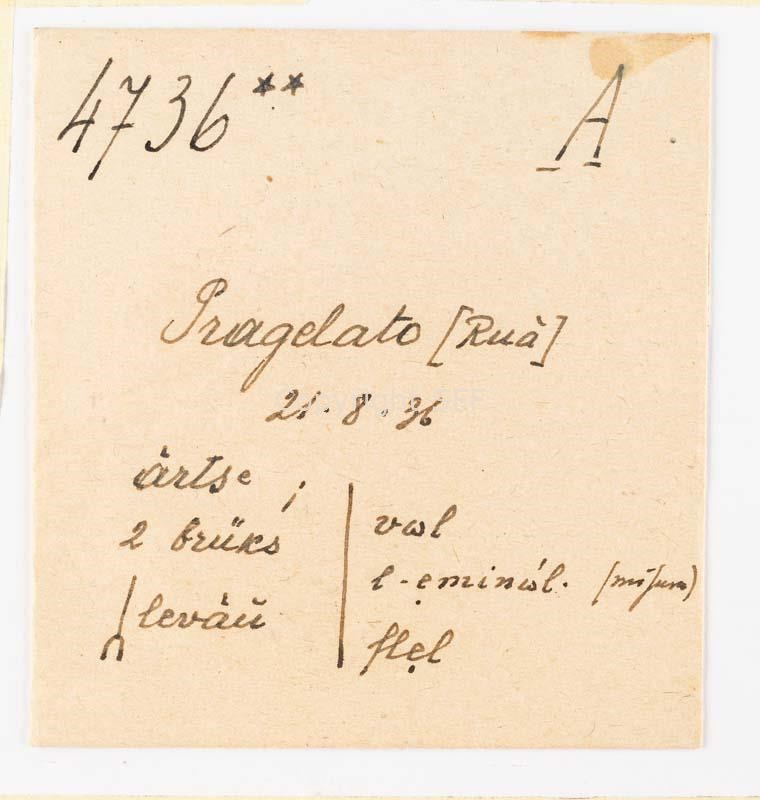 4736** A
Pragelato [Ruà]
21. 8. 36
àrtsᵉ ;
2 brüks
levàŭ
vωl
l-ẹminól. (misura)
flẹl